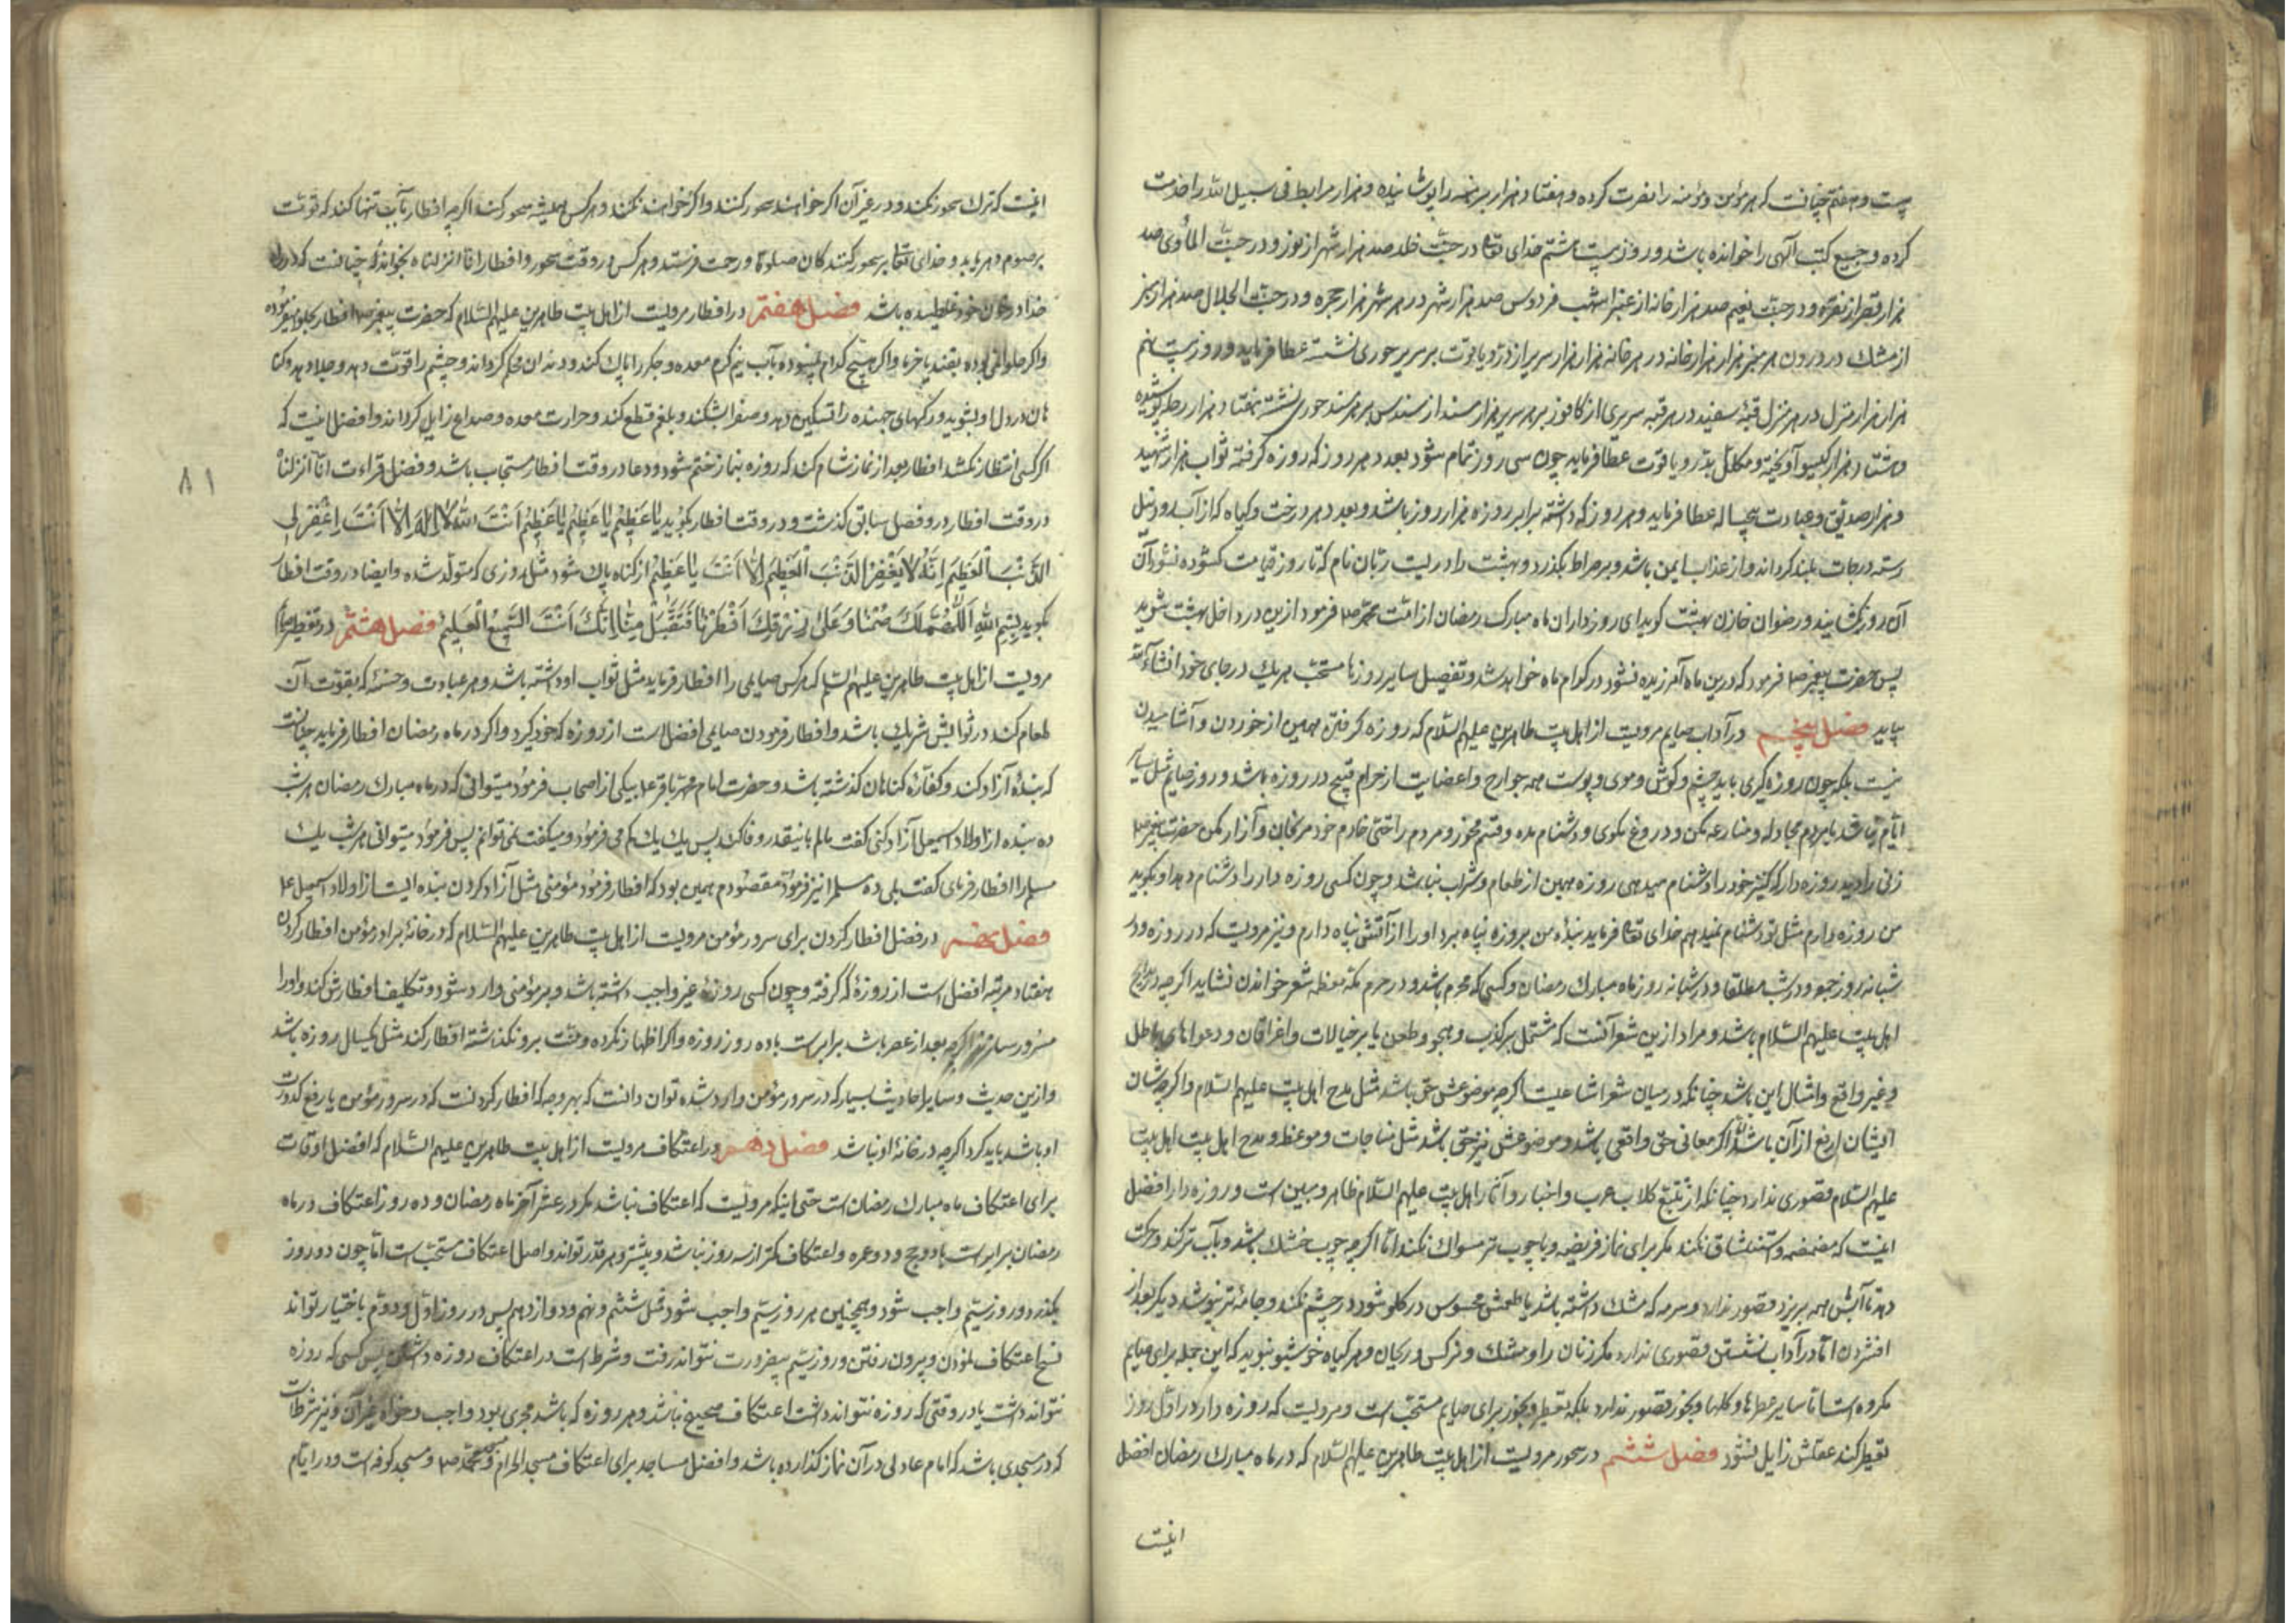 بیست و هفتم چنانست که هر مؤمن و مؤمنه را نصرت کرده و هفتاد هزار برهنه را پوشانیده و هزار مرابط فی سبیل الله را خدمت
کرده و جمیع کتب آلهی را خوانده باشد و روز بیست هشتم خدای تعالی در جنت خلد صد هزار شهر از نور و در جنت المأوی صد
هزار قصر از نقره و در جنت نعیم صد هزار خانه از عنبر اشهب فردوس صد هزار شهر در هر شهر هزار حجره و در جنت الجلال صد هزار منبر
از مشک در درون هر منبر هزار هزار خانه در هر خانه هزار هزار سریر از در و یاقوت بر سریر حوری نشسته عطا فرماید و روز بیست نهم
هزار هزار منزل در هر منزل قبهٔ سفید در هر قبه سریری از کافور بر هر سریر هزار مسند از سندس بر هر مسند حوری نشسته هفتاد هزار حله پوشیده
و هشتاد هزار گیسو آویخته و مکلل بدر و یاقوت عطا فرماید چون سی روز تمام شود بعدد هر روز که روزه گرفته ثواب هزار شهید
و هزار صدیق و عبادت پنجساله عطا فرماید و هر روز که داشته برابر روزه هزار روز باشد و بعدد هر درخت و گیاه که از آب رود نیل
رسته درجات بلند گرداند و از عذاب ایمن باشد و بر صراط بگذرد و بهشت را دریست ریان نام که تا روز قیامت گشوده نشود آن
آن روز گشایند و رضوان خازن بهشت گوید ای روزداران ماه مبارک رمضان از امت محمد ص فرمود ازین در داخل بهشت شوید
پس حضرت پیغمبر ص فرمود که درین ماه آمرزیده نشود در کدام ماه خواهد شد و تفصیل سایر روزها مستحب هریک در جای خود انشاء الله
بیاید فصل پنجم در آداب صایم مرویست از اهل بیت طاهرین علیهم السلام که روزه گرفتن همین از خوردن و آشامیدن
نیست بلکه چون روزه گیری باید چشم و گوش و موی و پوست همه جوارح و اعضایت از حرام قبیح در روزه باشد و روز صیام مثل سایر
ایام نباشد با مردم مجادله و منازعه مکن و دروغ مگوی و دشنام مده و قسم مخور و مردم را حتی خادم خود مرنجان و آزار مکن حضرت پیغمبر ص
زنی را دید روزه دار که کنیز خود را دشنام میدهی روزه همین از طعام و شراب نباشد و چون کسی روزه دار را دشنام دهد او بگوید
من روزه دارم مثل تو دشنام نمیدهم خدای تعالی فرماید بندهٔ من بروزه پناه برد او را از آتش پناه دارم و نیز مرویست که در روزه و در
شبانه روز جمعه و در شب مطلقا و در شبانه روز ماه مبارک رمضان و کسی که محرم باشد و در حرم مکه معظمه شعر خواندن نشاید اگرچه در مدایح
اهل بیت علیهم السلام باشد و مراد ازین شعر آنست که مشتمل بر کذب و هجو و طعن یا بر خیالات و اغراقات و دعواهای باطل
و غیر واقع و امثال این باشد چنانکه در میان شعرا شایعست اگرچه موضوعش حق باشد مثل مدح اهل بیت علیهم السلام و اگرچه شان
ایشان ارفع از آن باشد اما اگر معانی حق واقعی باشد و موضوعش نیز حق باشد مثل مناجات و موعظه و مدح اهل بیت اهل بیت
علیهم السلام قصوری ندارد چنانکه از تتبع کلاب عرب و اخبار و آثار اهل بیت علیهم السلام ظاهر و مبین است و روزه دار را افضل
اینست که مضمضه و استنشاق نکند مگر برای نماز فریضه و با چوب تر مسواک نکند اما اگرچه چوب خشک باشد و بآب تر کند و حرکت
دهد تا آبش همه بریزد قصور ندارد و سرمه که مشک داشته باشد یا طعمش محسوس در گلو شود در چشم نکند و جامهٔ تر نپوشد دیگر بعد از
افشردن اما در آداب نشستن قصوری ندارد مگر زنان را و مشک و نرگس و ریحان و هر گیاه خوشبو نبوید که این جمله برای صایم
مکروه است اما سایر عطرها و گلها و بخور قصور ندارد بلکه تعطر و بخور برای صایم مستحب است و مرویست که روزه دار در اول روز
تعطر کند عقلش زایل نشود فصل ششم در سحور مرویست از اهل بیت طاهرین علیهم السلام که در ماه مبارک رمضان افضل
اینست
اینست که ترک سحور نکند و در غیر آن اگر خواهند سحور کنند و اگر خواهند نکنند و هر کس همیشه سحور کند اگرچه افطار بآب تنها کند که قوت
بر صوم دهد باید و خدای تعالی بر سحور کنندکان صلوة و رحمت فرستد و هر کس در وقت سحور و افطار انا انزلناه بخواند چنانست که در راه
خدا در خون خود غلطیده باشد فصل هفتم در افطار مرویست از اهل بیت طاهرین علیهم السلام که حضرت پیغمبر ص افطار بحلوا میفرموده
و اگر حلوائی نبوده بقند یا خرما و اگر هیچ کدام نمیبوده بآب نیم گرم معده و جگر را پاک کند و دندان محکم گرداند و چشم را قوت دهد و جلا دهد و گنا
هان در دل او بشوید و رگهای جهنده را تسکین دهد و صفرا بشکند و بلغم قطع کند و حرارت معده و صداع زایل گرداند و افضل اینست که
اگر کسی انتظار نکشد افطار بعد از نماز شام کند که روزه بنماز ختم شود و دعا در وقت افطار مستجاب باشد و فضل قراءت انا انزلناه
در وقت افطار در فصل سابق گذشت و در وقت افطار بگوید یا عَظیمُ یا عَظیمُ یا عَظیمُ اَنْتَ اللهُ لا اِلهَ اِلاّ اَنْتَ اِغْفِرْ لِی
الذَّنْبَ الْعَظیمَ اِنَّهُ لا یَغْفِرُ الذَّنْبَ الْعَظیمَ اِلاّ اَنْتَ یا عَظیمُ از گناه پاک شود مثل روزی که متولد شده و ایضا در وقت افطار
بگوید بِسْمِ اللهِ اَللّهُمَّ لَکَ صُمْنا وَ عَلی رِزْقِکَ اَفْطَرْنا فَتَقَبَّلْ مِنّا اِنَّکَ اَنْتَ السَّمیعُ الْعَلیمُ فصل هشتم در تفطیر صایم
مرویست از اهل بیت طاهرین علیهم السلام که هر کس صایمی را افطار فرماید مثل ثواب او داشته باشد و هر عبادت و حسنه که بقوت آن
طعام کند در ثوابش شریک باشد و افطار فرمودن صایمی افضل است از روزه که خود گیرد و اگر در ماه رمضان افطار فرماید چنانست
که بندهٔ آزاد کند و کفارهٔ گناهان گذشته باشد و حضرت امام محمد باقر ع بیکی از اصحاب فرمود میتوانی که در ماه مبارک رمضان هر شب
ده بنده از اولاد اسمعیل آزاد کنی گفت مالم باینقدر وفا نکند پس یک یک کم می فرمود و میگفت نمی توانم پس فرمود میتوانی هر شب یک
مسلم را افطار فرمای گفت بلی ده مسلم را نیز فرمود مقصودم همین بود که افطار فرمود مؤمنی مثل آزاد کردن بنده ایست از اولاد اسمعیل ع
فصل نهم در فضل افطار کردن برای سرور مؤمن مرویست از اهل بیت طاهرین علیهم السلام که در خانهٔ برادر مؤمن افطار کردن
هفتاد مرتبه افضل است از روزهٔ که گرفته و چون کسی روزهٔ غیر واجب داشته باشد و بر مؤمنی وارد شود و تکلیف افطارش کند و او را
مسرور سازد اگرچه بعد از عصر باشد برابر است با ده روز روزه و اگر اظهار نکرده و منت برو نگذاشته افطار کند مثل یکسال روزه باشد
و ازین حدیث و سایر احادیث بسیار که در سرور مؤمن وارد شده توان دانست که بهر وجه که افطار کردنست که در سرور مؤمن یا رفع کدورت
او باشد باید کرد اگرچه در خانهٔ او نباشد فصل دهم در اعتکاف مرویست از اهل بیت طاهرین علیهم السلام که افضل اوقات
برای اعتکاف ماه مبارک رمضان است حتی اینکه مرویست که اعتکاف نباشد مگر در عشر آخر ماه رمضان و ده روز اعتکاف در ماه
رمضان برابر است با دو حج و دو عمره و اعتکاف کمتر از سه روز نباشد و بیشتر و هر قدر تواند و اصل اعتکاف مستحب است اما چون دو روز
بگذرد روز سیم واجب شود و همچنین هر روز سیم واجب شود مثل ششم و نهم و دوازدهم پس در روز اول و دوم باختیار تواند
فسخ اعتکاف نمودن و بیرون رفتن و روز سیم بیضرورت نتواند رفت و شرط است در اعتکاف روزه داشتن پس کسی که روزه
نتواند داشت یا در وقتی که روزه نتواند داشت اعتکاف صحیح نباشد و هر روزه که باشد مجزی بود واجب و خواه غیر آن و نیز شرطست
که در مسجدی باشد که امام عادلی در آن نماز گذارده باشد و افضل مساجد برای اعتکاف مسجد الحرام و مسجد محمد ص و مسجد کوفه است و در ایام
۸۱